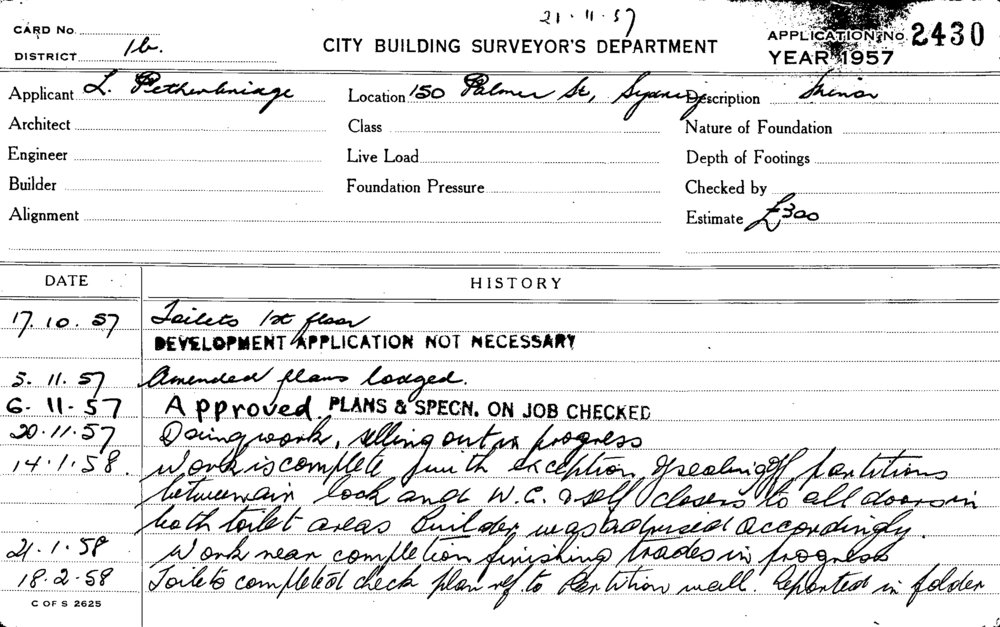 21·11·57
CARD No.
DISTRICT 1b.
CITY BUILDING SURVEYOR'S DEPARTMENT
APPLICATION No. 2430
YEAR 1957
Applicant L. Petherbridge Location 150 Palmer St, Sydney Description Minor
Architect Class Nature of Foundation
Engineer Live Load Depth of Footings
Builder Foundation Pressure Checked by
Alignment Estimate £300
DATE HISTORY
17.10.57 Toilets 1st floor
DEVELOPMENT APPLICATION NOT NECESSARY
5.11.57 Amended plans lodged.
6.11.57 Approved. PLANS & SPECN. ON JOB CHECKED
20.11.57 work, out in progress
14.1.58. Work is complete with exception of sealing off partitions
between air lock and W.C. & self closers to all doors in
both toilet areas Builder was advised accordingly.
21.1.58 Work near completion finishing trades in progress
18.2.58 Toilets completed check plan ref. to Partition wall. Reported in folder
C OF S 2625